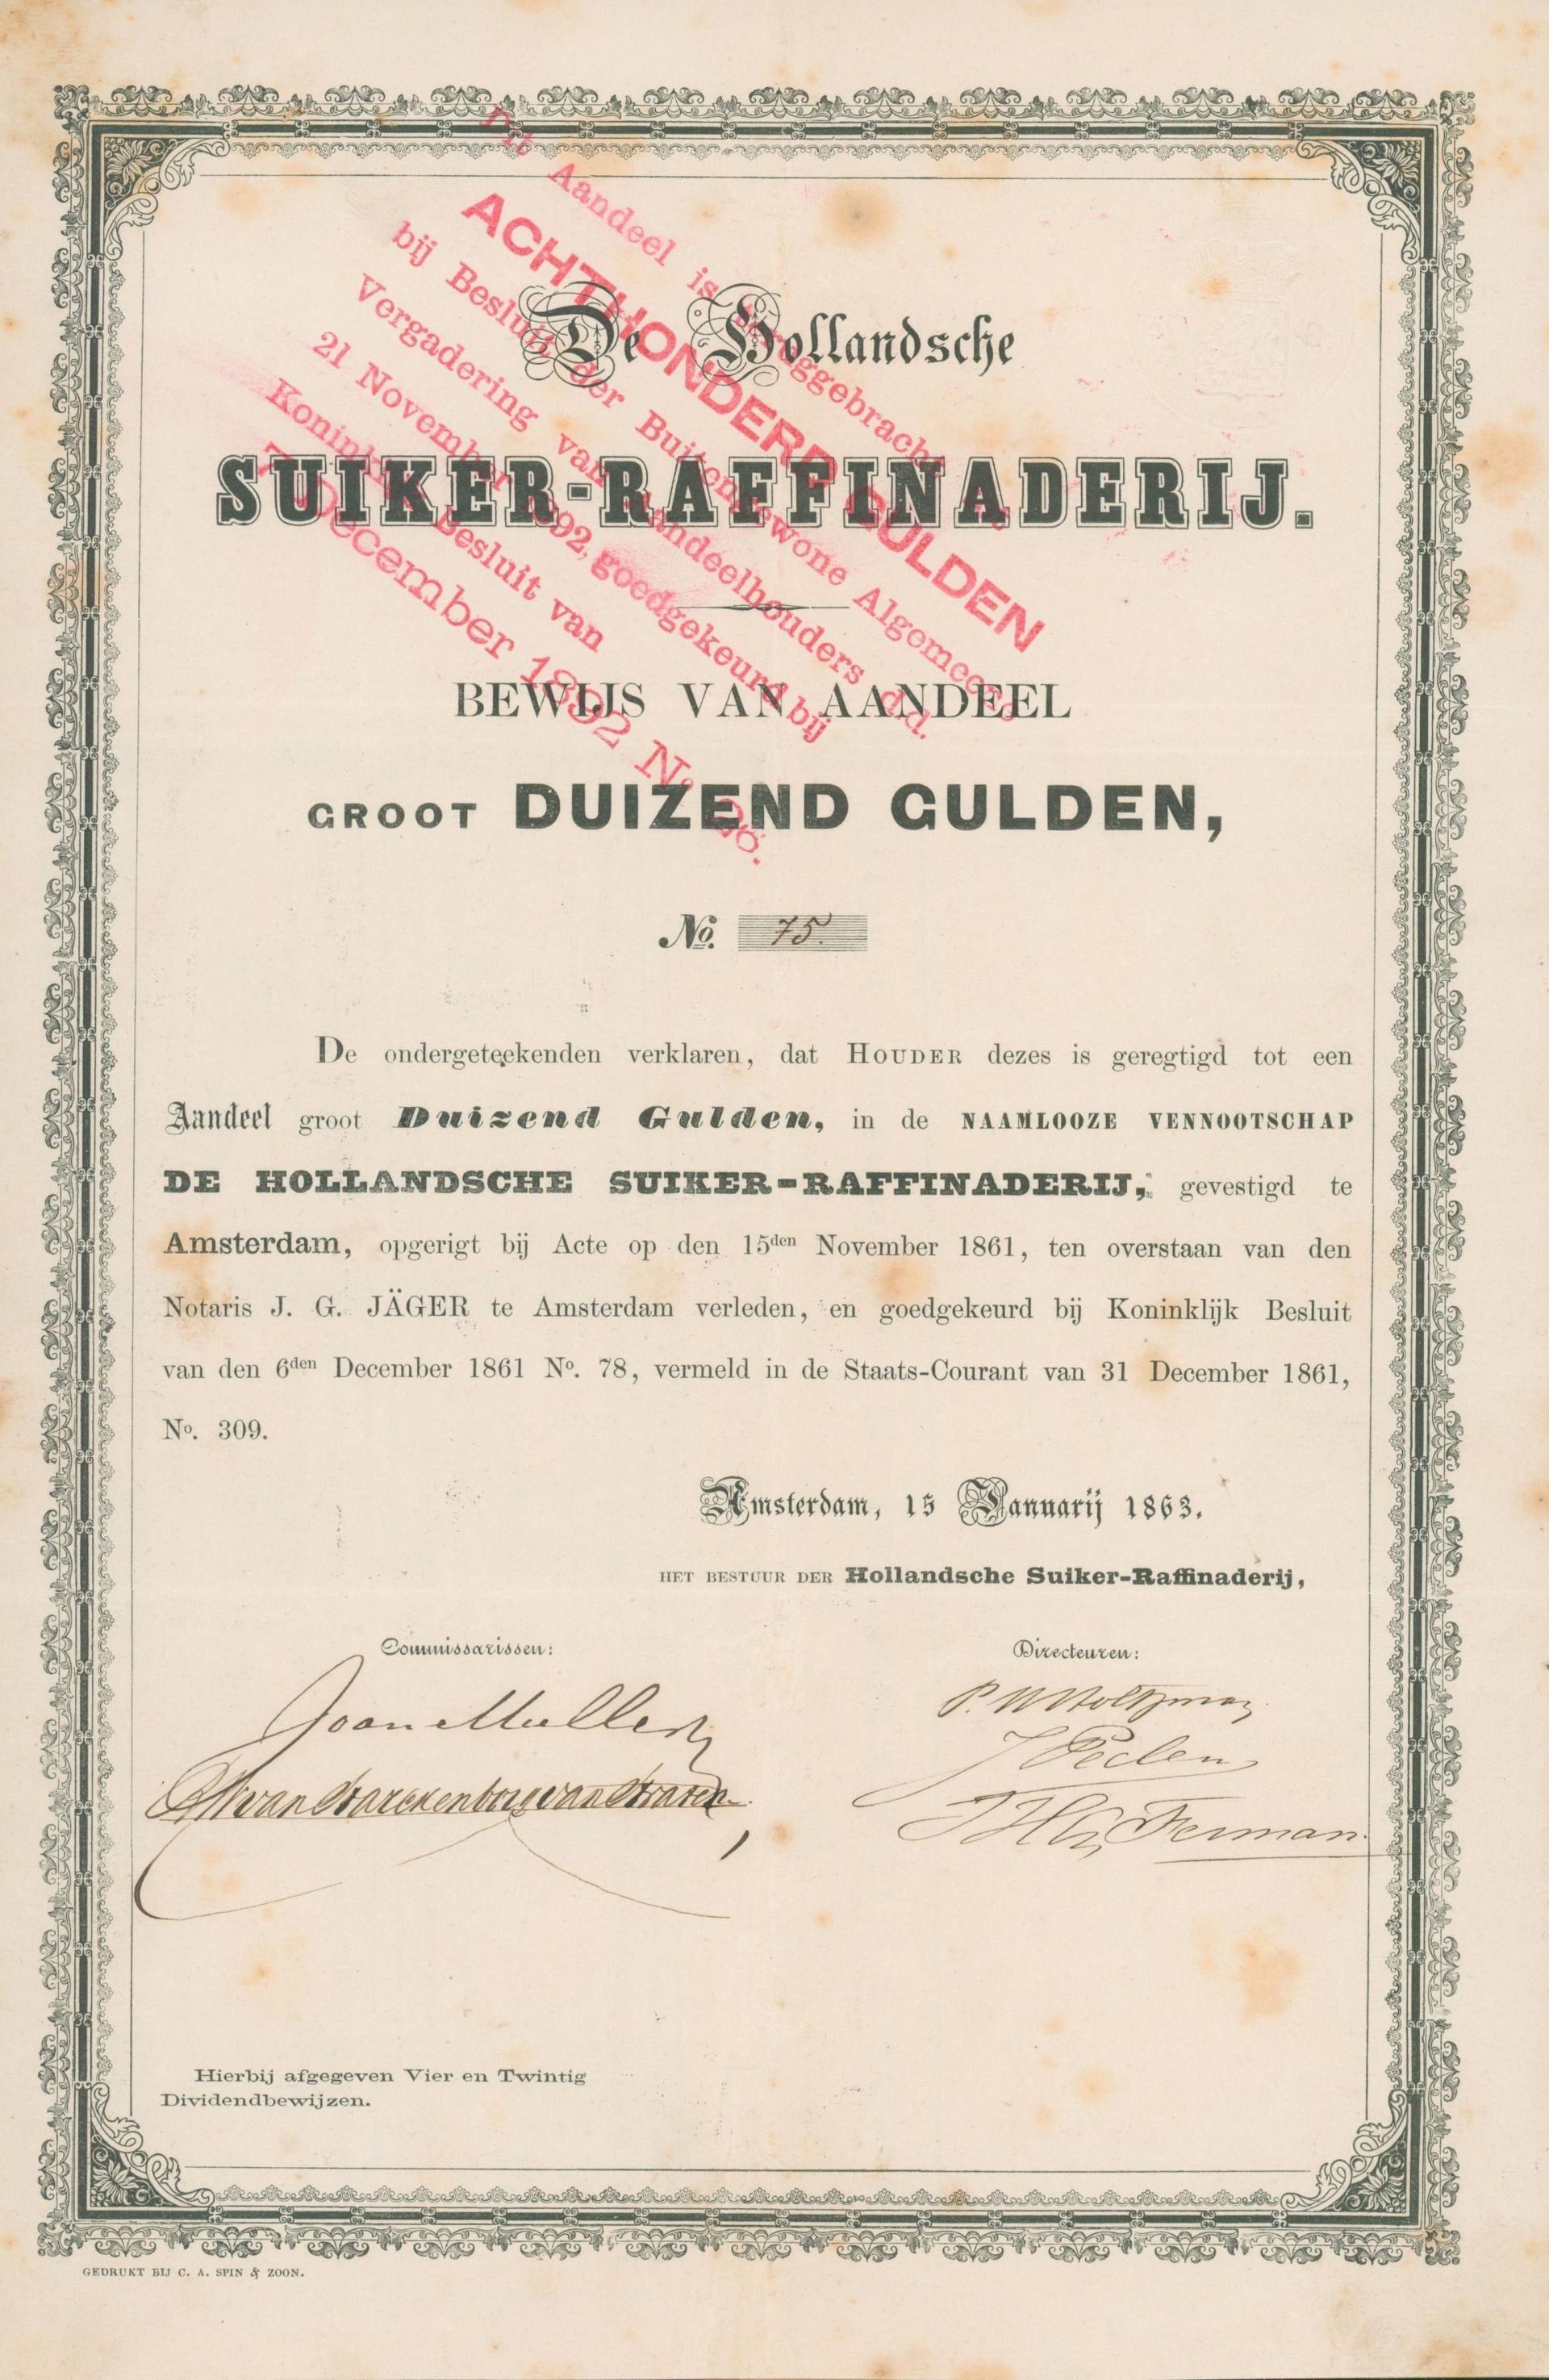 De Hollandsche
SUIKER-RAFFINADERIJ.
BEWIJS VAN AANDEEL
GROOT DUIZEND GULDEN,
No. 75.
De ondergeteekenden verklaren, dat HOUDER dezes is geregtigd tot een
Aandeel groot Duizend Gulden, in de NAAMLOOZE VENNOOTSCHAP
DE HOLLANDSCHE SUIKER-RAFFINADERIJ, gevestigd te
Amsterdam, opgerigt bij Acte op den 15den November 1861, ten overstaan van den
Notaris J. G. JÄGER te Amsterdam verleden, en goedgekeurd bij Koninklijk Besluit
van den 6den December 1861 No. 78, vermeld in de Staats-Courant van 31 December 1861,
No. 309.
Amsterdam, 15 Januarij 1863.
HET BESTUUR DER Hollandsche Suiker-Raffinaderij,
Commissarissen:
Directeuren:
Joan Muller
van Starckenborg van Straten
Hierbij afgegeven Vier en Twintig
Dividendbewijzen.
GEDRUKT BIJ C. A. SPIN & ZOON.
Dit Aandeel is teruggebracht tot
ACHTHONDERD GULDEN
bij Besluit der Buitengewone Algemeene
Vergadering van Aandeelhouders d.d.
21 November 1892, goedgekeurd bij
Koninklijk Besluit van
7 December 1892 No. 26.